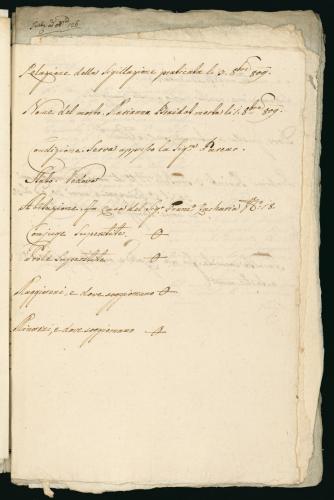 Relazione della Sigillazione praticata li 3. 8bre 809.
Nome del morto. Marianna morta li 1. 8bre 809.
Condizione. Serva appresso la Sigra
Stato. Vedova
Abitazione. in Casa del Sigr Franco Zacharia No 18
Conjuge Superstite
Prole Superstite
Maggiori, e dove soggiornano
Minori, e dove soggiornano